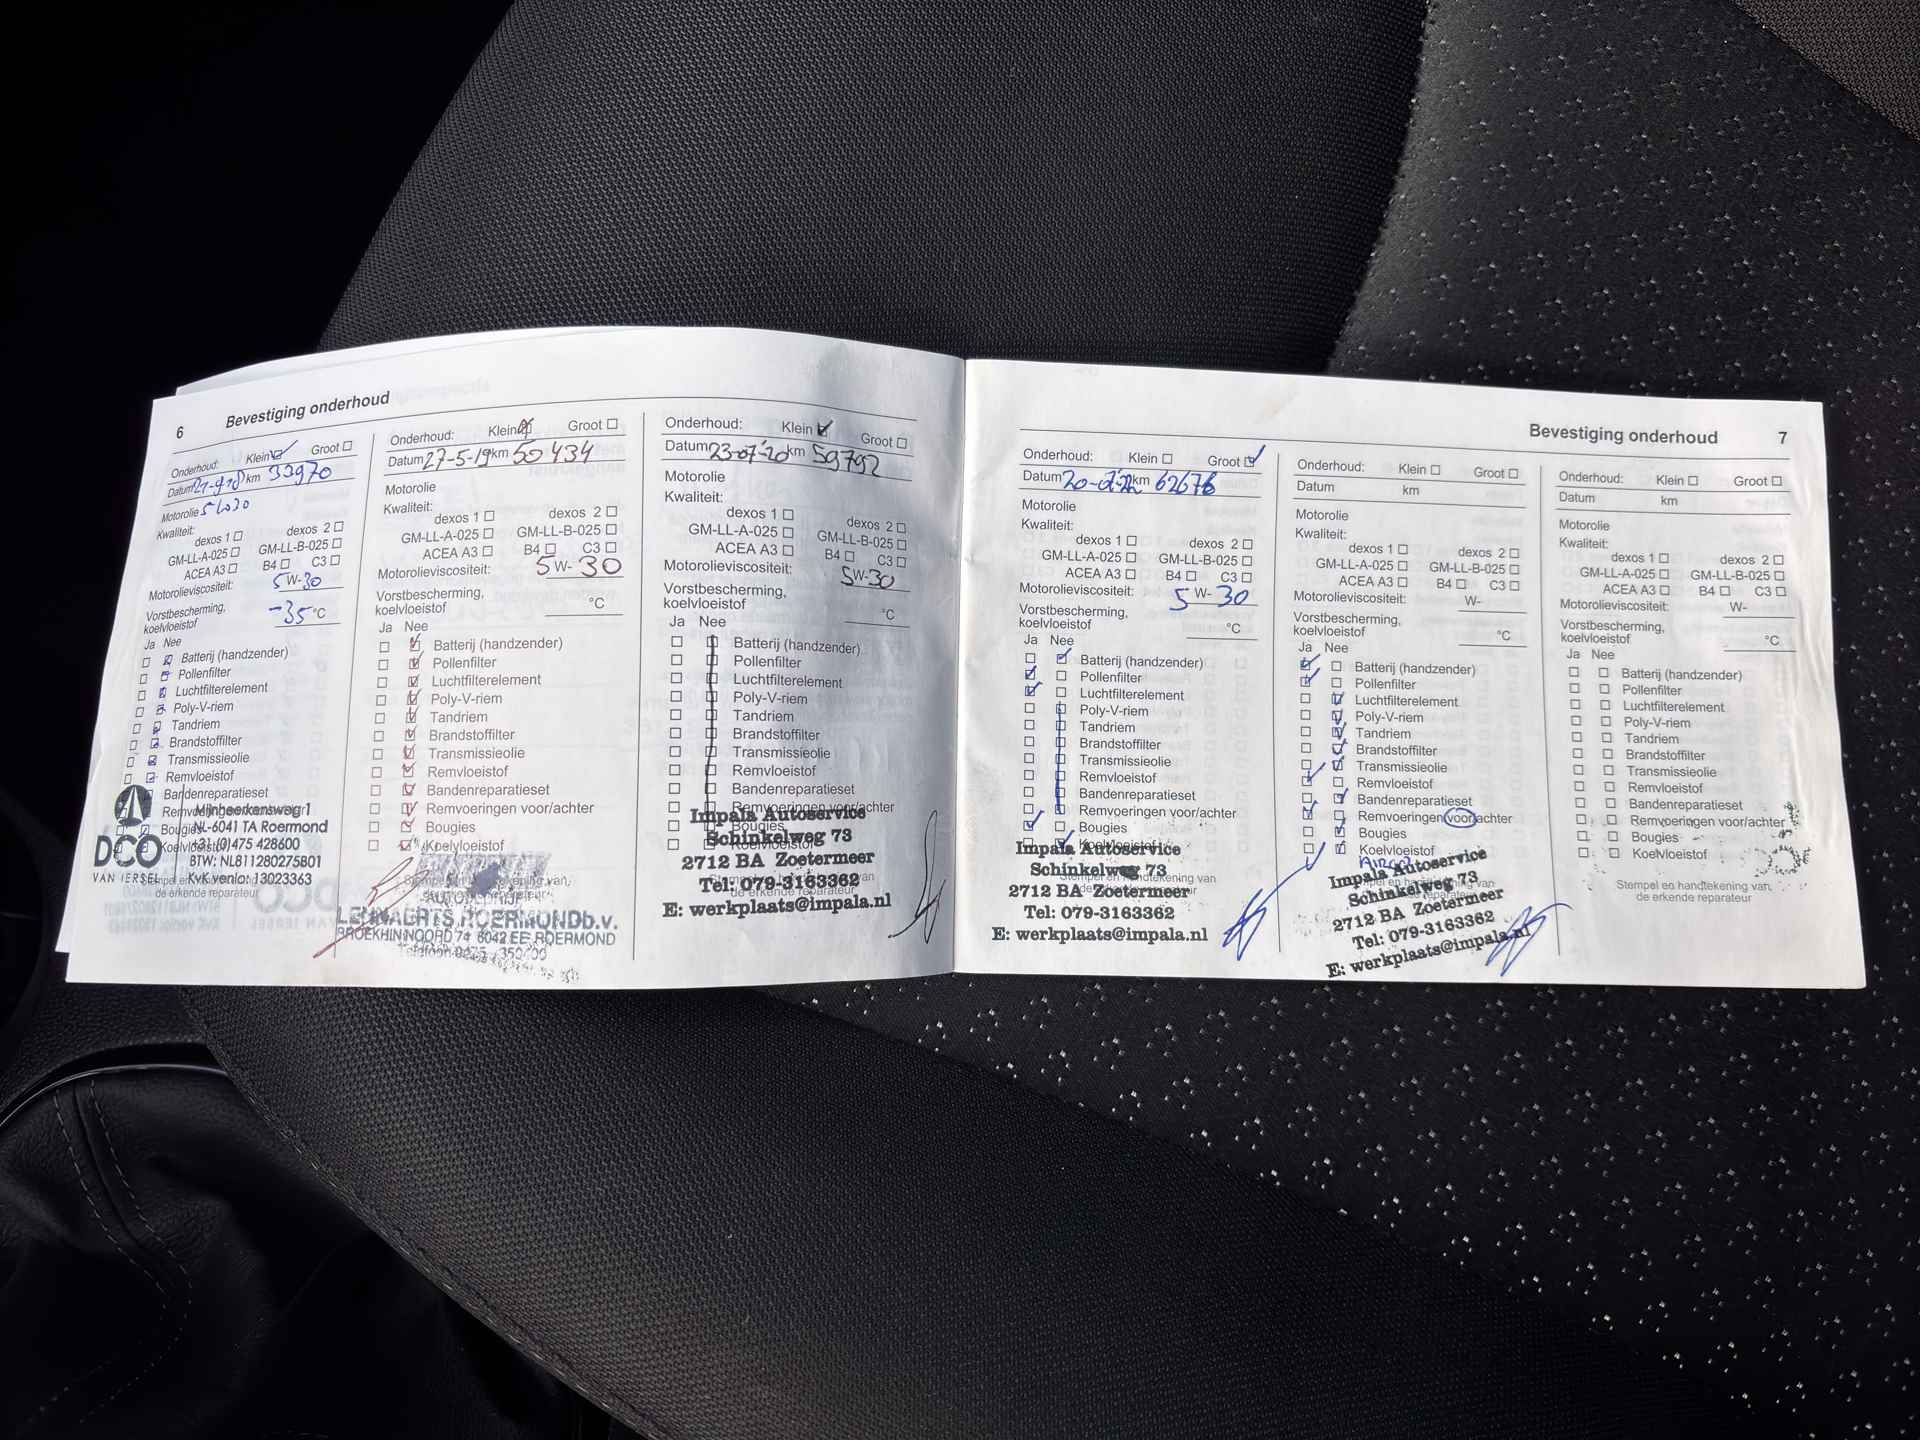 6 Bevestiging onderhoud
Onderhoud: Klein Groot
Datum 21-9-18 km 33970
Motorolie 5W30
Kwaliteit:
dexos 1 dexos 2
GM-LL-A-025 GM-LL-B-025
ACEA A3 B4 C3
Motorolieviscositeit: 5 W-30
Vorstbescherming,
koelvloeistof -35 °C
Ja Nee
Batterij (handzender)
Pollenfilter
Luchtfilterelement
Poly-V-riem
Tandriem
Brandstoffilter
Transmissieolie
Remvloeistof
Bandenreparatieset
Bougies
Koelvloeistof
DCO
VAN IERSEL
Mijnheerkensweg 1
NL-6041 TA Roermond
+31 (0)475 428600
BTW: NL811280275B01
KvK venlo: 13023363
Stempel en handtekening van
de erkende reparateur
Onderhoud: Klein Groot
Datum 27-5-19 km 50434
Motorolie
Kwaliteit:
dexos 1 dexos 2
GM-LL-A-025 GM-LL-B-025
ACEA A3 B4 C3
Motorolieviscositeit: 5 W- 30
Vorstbescherming,
koelvloeistof °C
Ja Nee
Batterij (handzender)
Pollenfilter
Luchtfilterelement
Poly-V-riem
Tandriem
Brandstoffilter
Transmissieolie
Remvloeistof
Bandenreparatieset
Remvoeringen voor/achter
Bougies
Koelvloeistof
AUTOBEDRIJF
LENNAERTS ROERMOND b.v.
BROEKHIN NOORD 74 6042 EE ROERMOND
Onderhoud: Klein Groot
Datum 23-07-'20 km 59792
Motorolie
Kwaliteit:
dexos 1 dexos 2
GM-LL-A-025 GM-LL-B-025
ACEA A3 B4 C3
Motorolieviscositeit: 5W-30
Vorstbescherming,
koelvloeistof °C
Ja Nee
Batterij (handzender)
Pollenfilter
Luchtfilterelement
Poly-V-riem
Tandriem
Brandstoffilter
Transmissieolie
Remvloeistof
Bandenreparatieset
Remvoeringen voor/achter
Bougies
Koelvloeistof
Impala Autoservice
Schinkelweg 73
2712 BA Zoetermeer
Stempel en handtekening van
Tel: 079-3163362
de erkende reparateur
E: werkplaats@impala.nl
Bevestiging onderhoud 7
Onderhoud: Klein Groot
Datum km 62676
Motorolie
Kwaliteit:
dexos 1 dexos 2
GM-LL-A-025 GM-LL-B-025
ACEA A3 B4 C3
Motorolieviscositeit: 5 W- 30
Vorstbescherming,
koelvloeistof °C
Ja Nee
Batterij (handzender)
Pollenfilter
Luchtfilterelement
Poly-V-riem
Tandriem
Brandstoffilter
Transmissieolie
Remvloeistof
Bandenreparatieset
Remvoeringen voor/achter
Bougies
Koelvloeistof
Impala Autoservice
Schinkelweg 73
Stempel en handtekening van
2712 BA Zoetermeer
de erkende reparateur
Tel: 079-3163362
E: werkplaats@impala.nl
Onderhoud: Klein Groot
Datum km
Motorolie
Kwaliteit:
dexos 1 dexos 2
GM-LL-A-025 GM-LL-B-025
ACEA A3 B4 C3
Motorolieviscositeit: W-
Vorstbescherming,
koelvloeistof °C
Ja Nee
Batterij (handzender)
Pollenfilter
Luchtfilterelement
Poly-V-riem
Tandriem
Brandstoffilter
Transmissieolie
Remvloeistof
Bandenreparatieset
Remvoeringen voor/achter
Bougies
Koelvloeistof
Impala Autoservice
Schinkelweg 73
2712 BA Zoetermeer
Tel: 079-3163362
E: werkplaats@impala.nl
Onderhoud: Klein Groot
Datum km
Motorolie
Kwaliteit:
dexos 1 dexos 2
GM-LL-A-025 GM-LL-B-025
ACEA A3 B4 C3
Motorolieviscositeit: W-
Vorstbescherming,
koelvloeistof °C
Ja Nee
Batterij (handzender)
Pollenfilter
Luchtfilterelement
Poly-V-riem
Tandriem
Brandstoffilter
Transmissieolie
Remvloeistof
Bandenreparatieset
Remvoeringen voor/achter
Bougies
Koelvloeistof
Stempel en handtekening van
de erkende reparateur